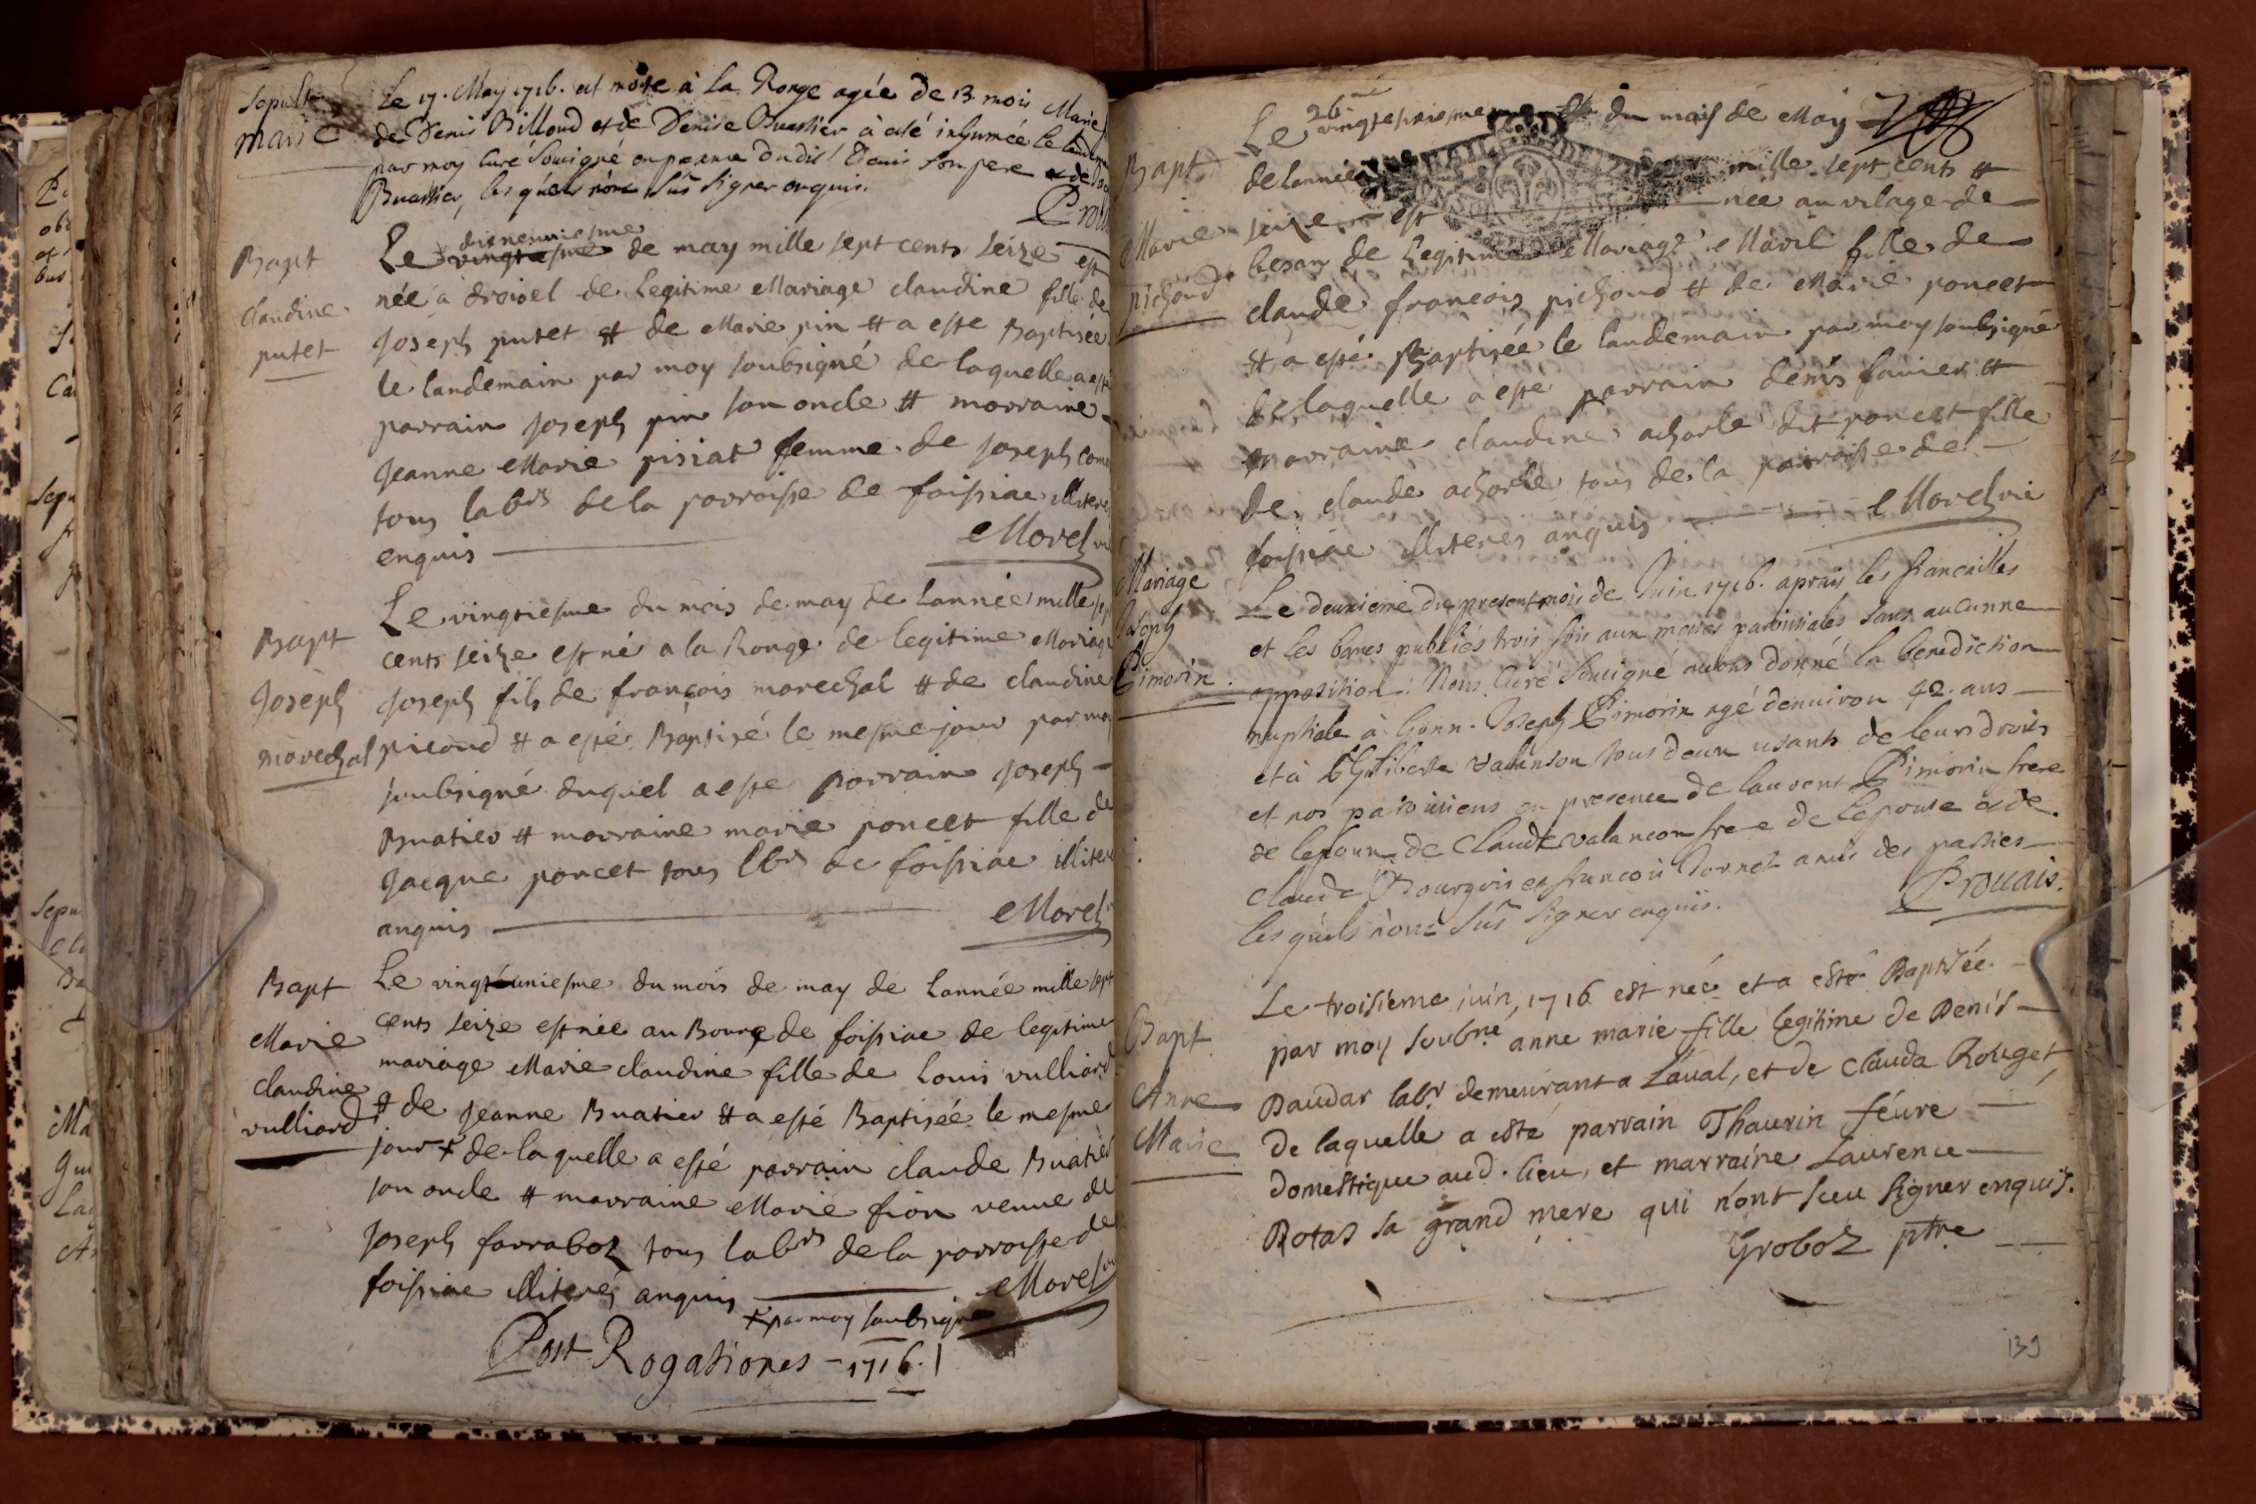 Sepult
marie
Le 17. May 1716. est morte à La Ronge agée de 13 mois Marie
de Denis Billoud et de Denise Buattier à esté inhumée le
par moy Curé Sousigné en presence dudit Denis son pere et de
Buattier, les quels n'ont sus signer enquis.
Bapt
claudine
putet
Le dixneuviesme de may mille sept cents seize est
née a droisel de Legitime Mariage claudine fille de
Joseph putet et de Marie pin et a esté Baptisée
le landemain par moy soubsigné de laquelle a esté
parrain Joseph pin son oncle et marraine
Jeanne Marie pisiat femme de Joseph
tous labrs de la parroisse de foissiac
enquis
Morel
Bapt
Joseph
marechal
Le vingtiesme du mois de may de Lannée mille
cents seize est né a la Ronge de legitime Mariage
Joseph fils de françois marechal et de claudine
picoud et a esté Baptisé le mesme jour par moy
soubsigné duquel a esté parrain Joseph
Buatier et marraine marie poncet fille de
Jacque poncet tous lbrs de foissiac
anquis
Morel
Bapt
Marie
claudine
vulliard
Le vingtéuniesme du mois de may de Lannée mille sept
cents seize est née au Bourg de foissiac de legitime
mariage Marie claudine fille de Louis vulliard
et de Jeanne Buatier et a esté Baptisée le mesme
jour + de laquelle a esté parrain claude Buatier
son oncle et marraine Marie fion veuve de
Joseph farraboz tous labrs de la parroisse de
foissiac illiterés anquis
Morel
+ par moy soubsigné
Post Rogationes - 1716.
Bapt
Marie
pichoud
Le 26me du mois de May
de Lannée mille sept cents et
seize est née au vilage de
besan de Legitime Mariage Marie fille de
claude françois pichoud et de Marie poncet
et a esté Baptisée le landemain par moy soubsigné
de laquelle a esté parrain denis favier et
marraine claudine acharle dit poncet fille
de claude acharle tous de la parroisse de
foissiac illiterés anquis
Morel vic
Mariage
Joseph
Pimorin
Le deuxieme du present mois de Juin 1716. aprais les fiancailles
et les banes publiés trois fois aux messes paroissiales sans aucunne
opposition. Nous Curé Sousigné avons donné la benediction
nuptiale à honn. Joseph Pimorin agé denuiron 42. ans
et à Philiberte Valanson tous deux usants de leurs droits
et nos paroissiens en presence de laurent Pimorin frere
de lespoux de Claude valancon frere de lespouse et de
Claude Bourgois et francois Jornet amis des parties
les quels n'ont sus signer enquis.
Prouais.
Bapt
Anne
Marie
Le troisième juin, 1716 est née et a esté Baptisée
par moy soubné anne marie fille legitime de Denis
Daudar labr demeurant a Laval, et de Clauda Rouget
de laquelle a esté parrain Thaurin féure
domestique aud. lieu, et marraine Laurence
Rotas sa grand mere qui n'ont sceu signer enquis.
Groboz ptre
139